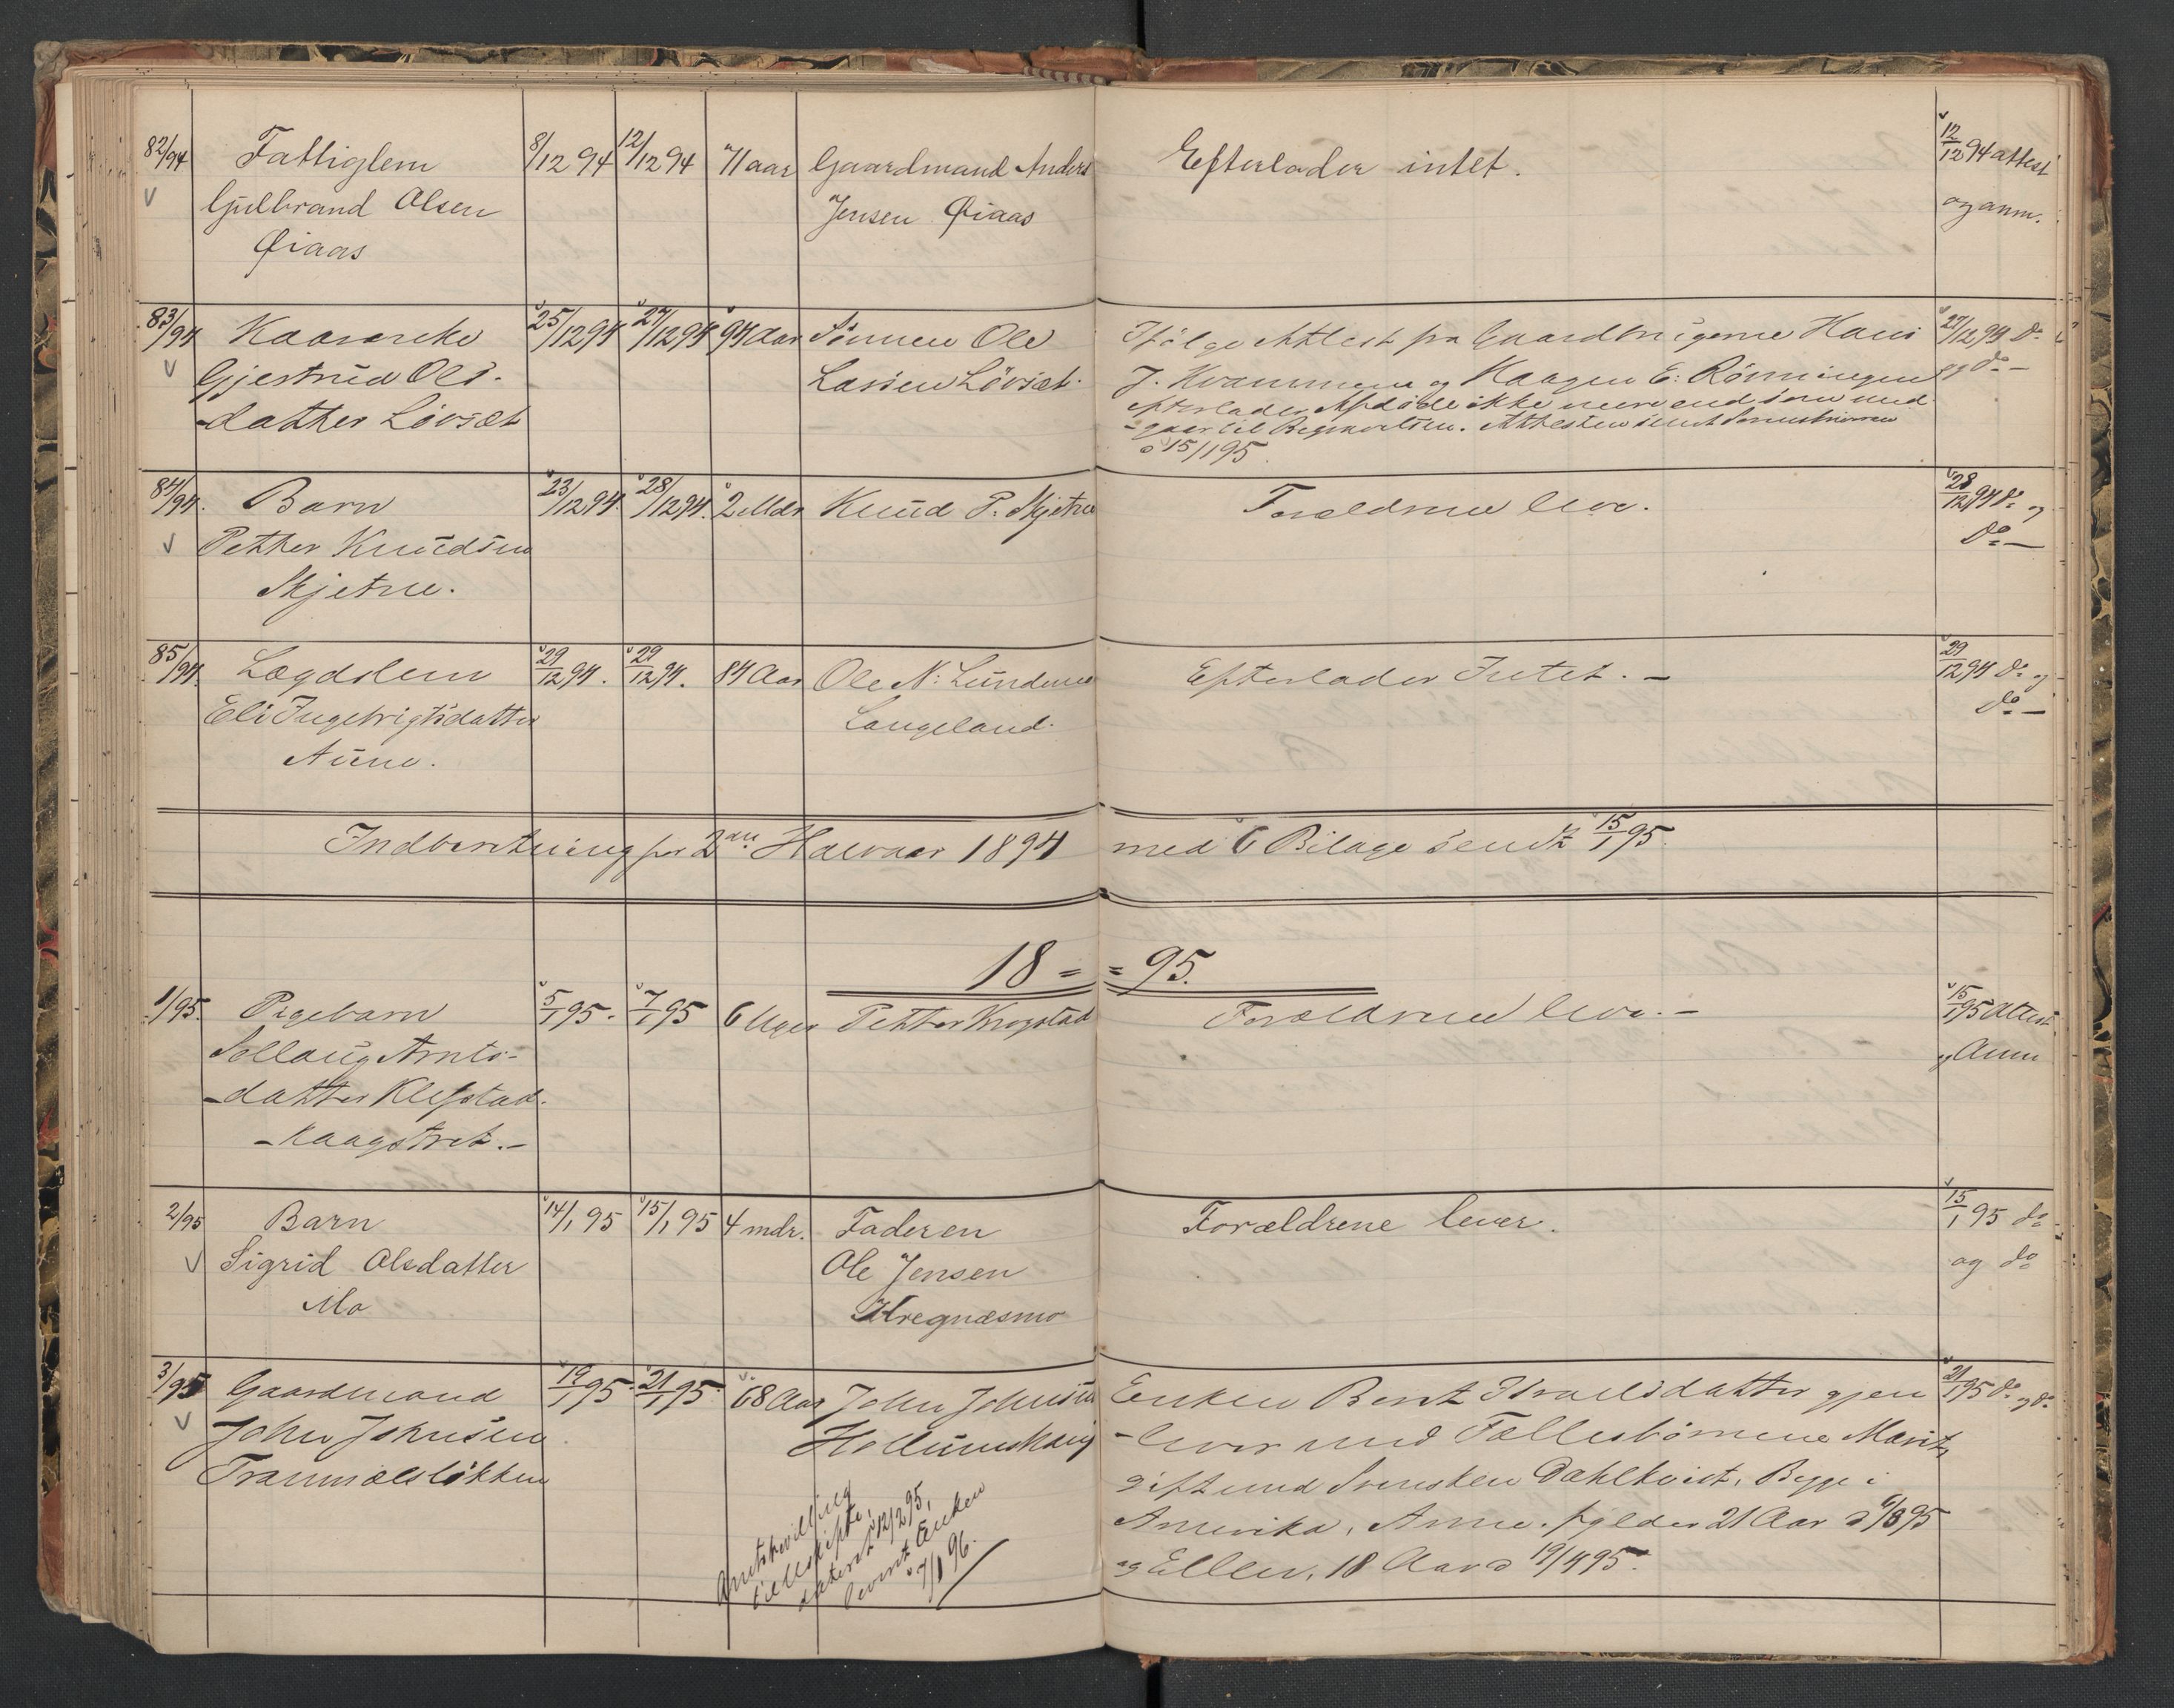 82/94 Fattiglem 8/12 94 12/12 94 71 aar Gaardmand Anders Efterlader intet. 12/12 94 attest
Gulbrand Olsen Jensen Øiaas og anm.
Øiaas
83/94 Kaarenke 25/12 94 27/12 94 94 Aar Sönnen Ole Ifölge Attest fra Gaardbrugerne Hans 27/12 94 Do
Gjertrud Ols- Larsen Lövset. J. Kvammen og Haagen E. Rönningen og Do —
-datter Lövset efterlader Afdöde ikke mere end som med
-gaar til Begravelsen. Attesten sendt Sorenskriveren
d 15/1 95.
84/94. Barn 23/12 94. 28/12 94. 2 Mdr Knud P. Skjetne Forældrene lever. 28/12 94 Do og
Petter Knudsen Do —
Skjetne.
85/94. Lægdslem 29/12 94. 29/12 94. 84 Aar Ole N. Lundemo Efterlader Intet. — 29/12 94 Do og
Eli Ingebrigtsdatter Langeland. Do —
Aune.
Indberetning for 2den Halvaar 1894 med 6 Bilage sendt 15/1 95.
18 = = 95.
1/95. Pigebarn 5/1 95. 7/1 95 6 Uger Petter Krogstad Forældrene lever. — 15/1 95 Attest
Sollaug Arnts- og Anm
-datter Klefstad-
-Kaagstret. —
2/95 Barn 14/1 95 15/1 95 4 mdr. Faderen Forældrene lever. 15/1 95 do
Sigrid Olsdatter Ole Jensen og do
Mo Hregnæsmo
3/95 Gaardmand 19/1 95. 21/1 95. 68 Aar John Johnsen Enken Berit Iversdatter gjen 21/1 95 Do og Do
John Johnsen -lever med Fællesbørnene Marit,
Tranmælsløkken gift med Svensken Dahlkvist, Begge i
Amerika, Anne fylder 21 Aar d 6/8 95
og Ellen, 18 Aar d 19/4 95.
Amtsbevilling
til Uskiftet
dateret 12/2 95,
leveret Enken
d 7/1 96.